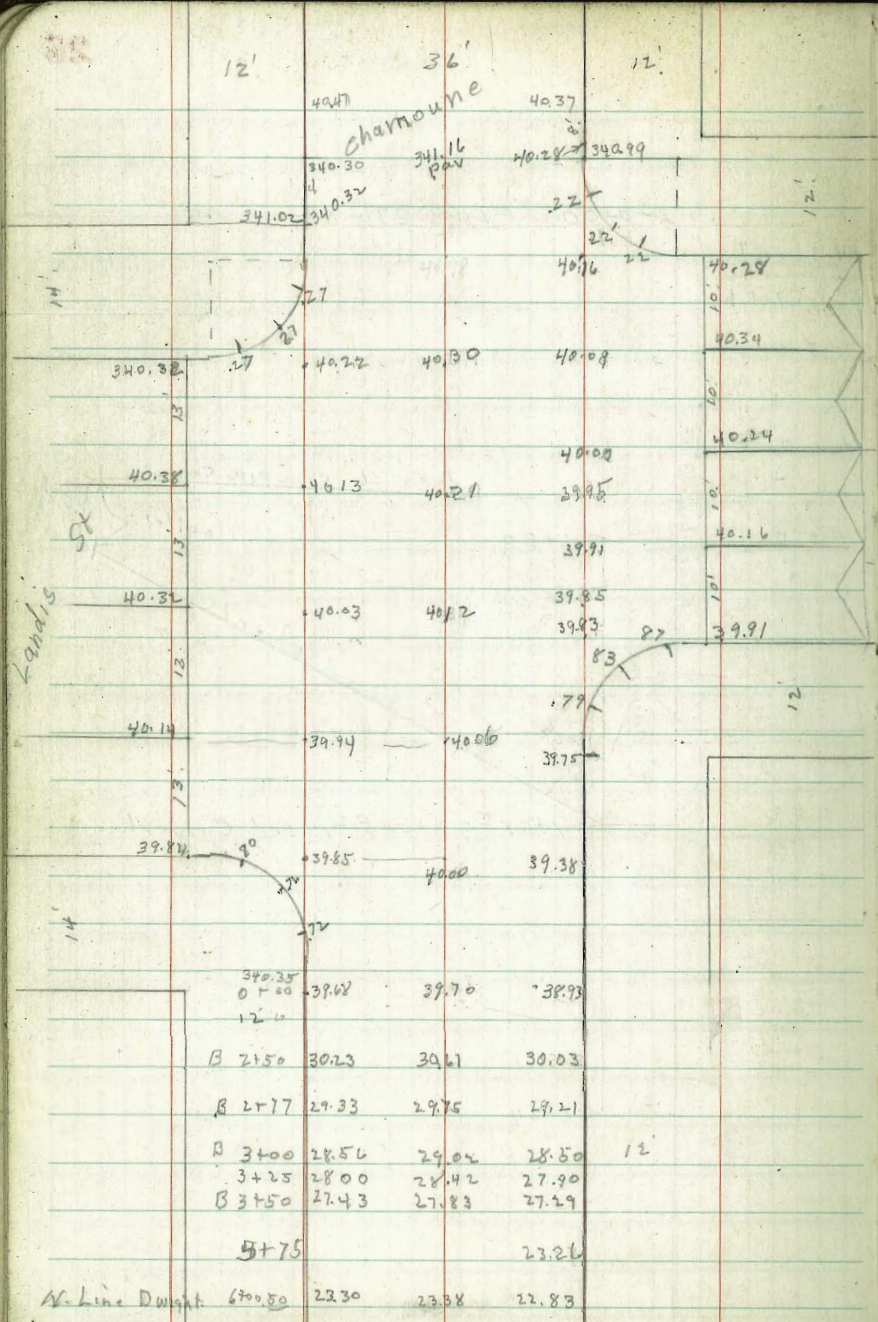 12' 36' 12'
40.47 40.37
Chamoune
340.30 341.16 40.28 340.99
4 pav 8'
341.02 340.32 .22 12'
22' 22
40.16 40.28
14' .27 10'
27 40.34
.27
340.38 40.22 40.30 40.08
13' 10'
40.24
40.00
40.38 40 13 40.21 39.95
St 10'
13' 39.91 40.16
Landis
40.32 40.03 40.12 39.85 10'
39.83 87 39.91
13 83
.79 12'
40.14 39.94 40.06
39.75
13'
39.84 80 39.85 40.00 39.38
72
14'
340.35
0+00 39.68 39.70 38.93
12
B 2+50 30.23 30.61 30.03
B 2+77 29.33 29.75 29.21
B 3+00 28.56 29.02 28.50 12'
3+25 28 00 28.42 27.90
B 3+50 27.43 27.83 27.29
5+75 23.26
N. Line Dwight. 6+00.50 23.30 23.38 22.83